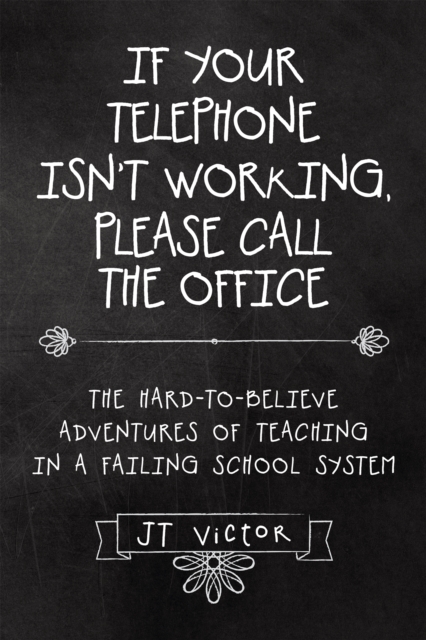 IF YOUR
TELEPHONE
ISN'T WORKING,
PLEASE CALL
THE OFFICE
THE HARD-TO-BELIEVE
ADVENTURES OF TEACHING
IN A FAILING SCHOOL SYSTEM
JT VICTOR